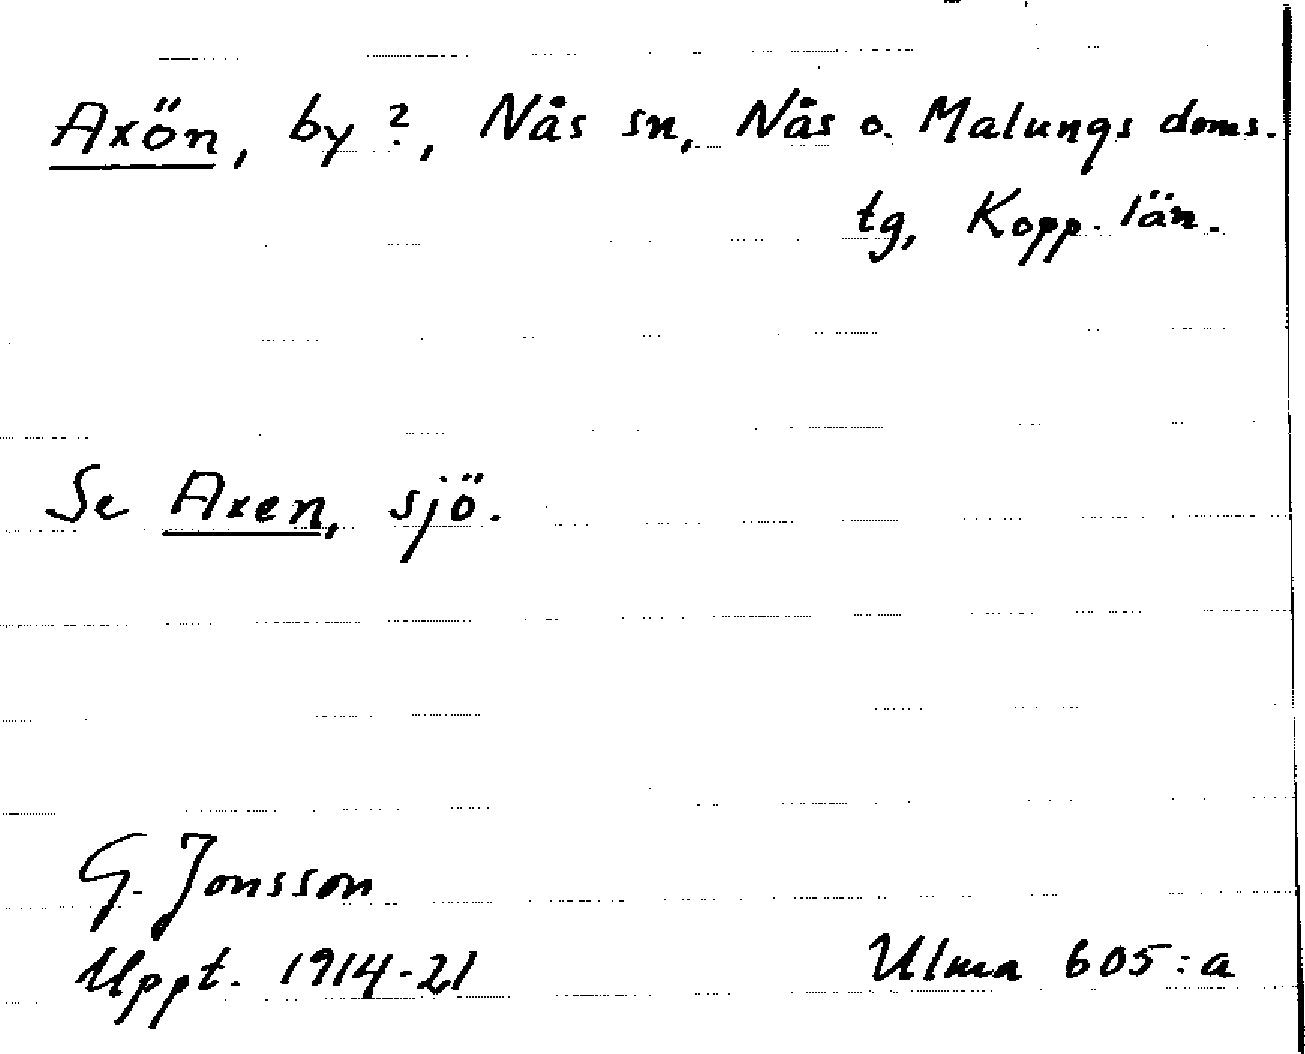 Axön, by ?, Nås sn, Nås o. Malungs doms.
tg, Kopp. län.
Se Axen, sjö.
G. Jonsson
Uppt. 1914-21
Ulma 605:a